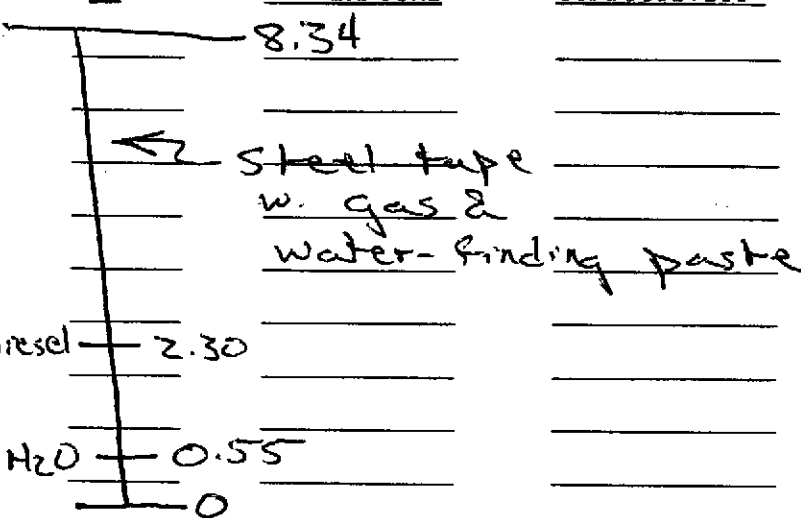 8.34
Steel tape
w. gas &
water-finding paste
2.30
H2O 0.55
0